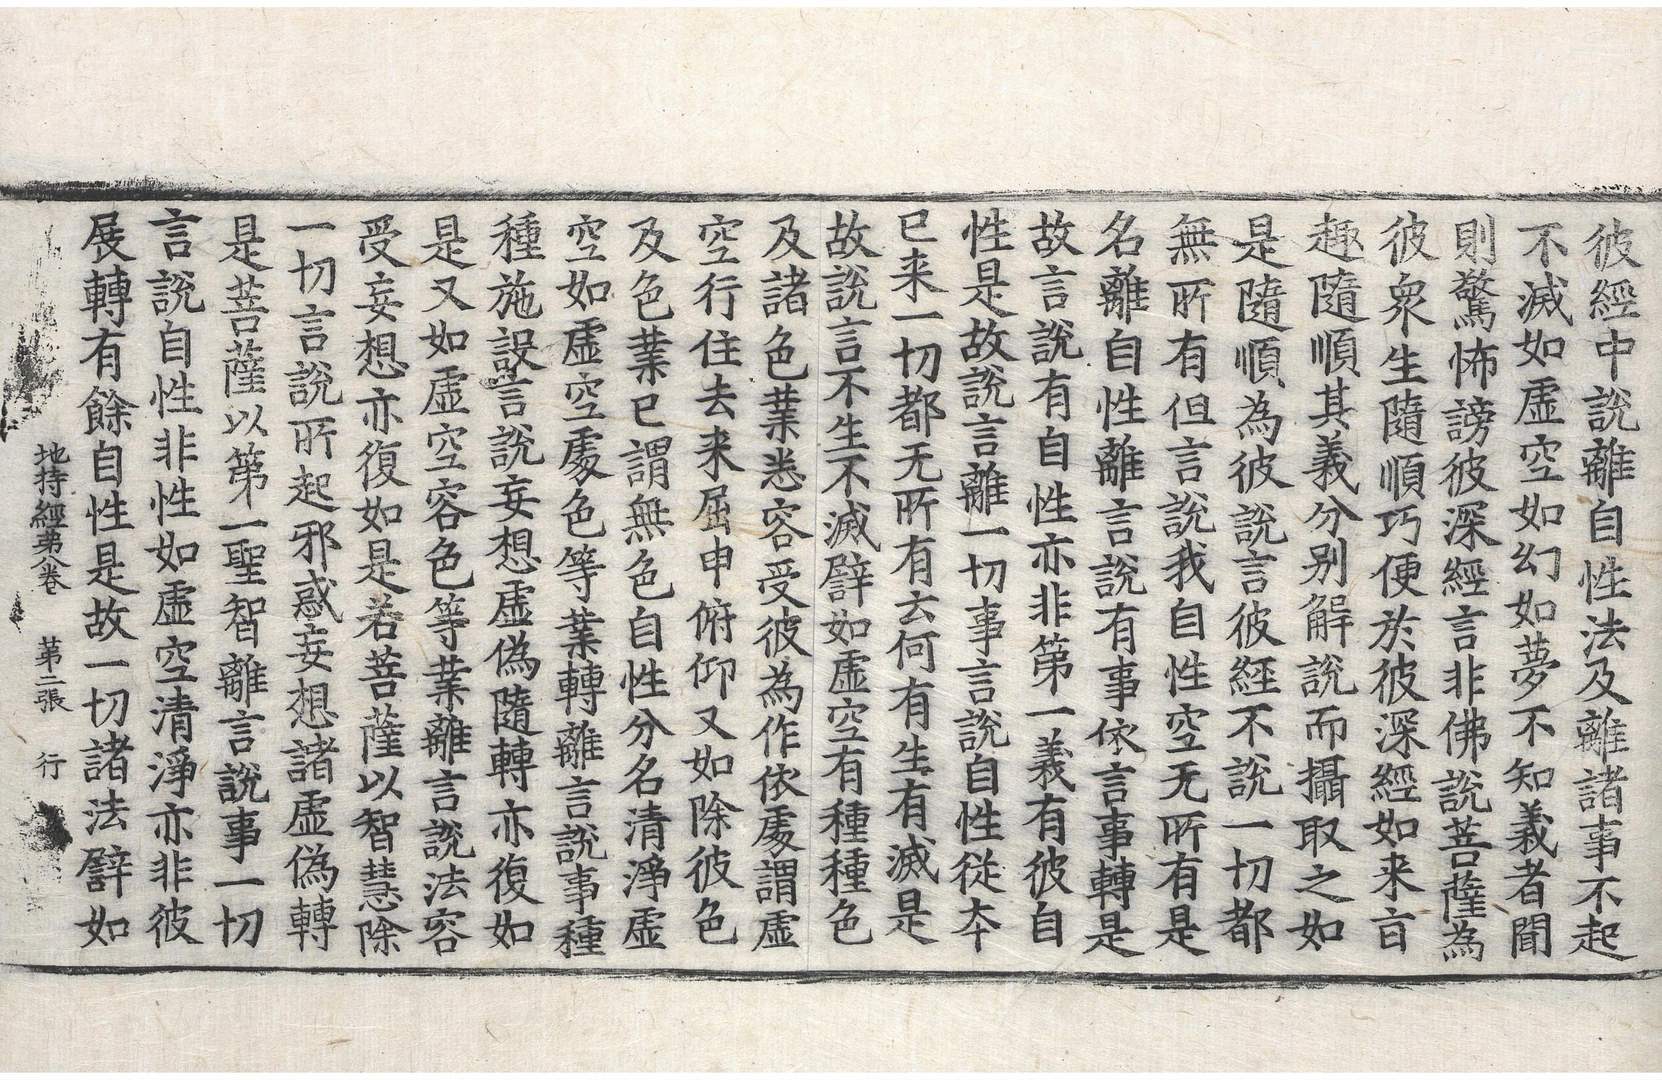 彼經中說離自性法及離諸事不起
不滅如虛空如幻如夢不知義者聞
則驚怖謗彼深經言非佛說菩薩為
彼衆生隨順巧便於彼深經如来言
趣隨順其義分别解說而攝取之如
是隨順為彼說言彼經不說一切都
無所有但言說我自性空无所有是
名離自性離言說有事依言事轉是
故言說有自性亦非第一義有彼自
性是故說言離一切事言說自性從夲
已来一切都无所有云何有生有滅是
故說言不生不滅譬如虛空有種種色
及諸色業悉容受彼為作依處謂虛
空行住去来屈申俯仰又如除彼色
及色業已謂無色自性分名清淨虛
空如虛空處色等業轉離言說事種
種施設言說妄想虛偽隨轉亦復如
是又如虛空容色等業離言說法容
受妄想亦復如是若菩薩以智慧除
一切言說所起邪惑妄想諸虛偽轉
是菩薩以第一聖智離言說事一切
言說自性非性如虛空清淨亦非彼
展轉有餘自性是故一切諸法譬如
地持經苐八卷 苐二張 行